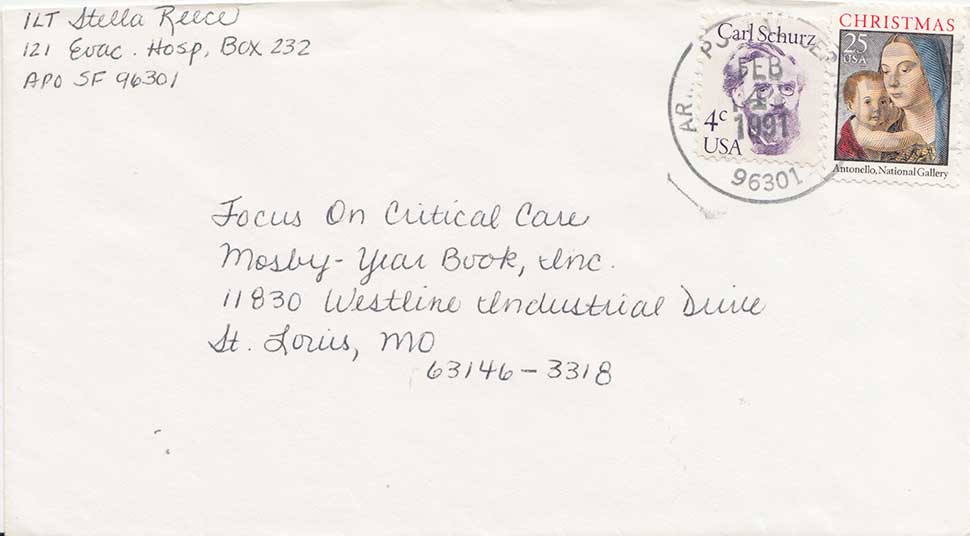 1LT Stella Reece
121 Evac. Hosp, Box 232
APO SF 96301
Carl Schurz
4c
USA
CHRISTMAS
25
USA
Antonello, National Gallery
FEB
1991
96301
Focus On Critical Care
Mosby-Year Book, Inc.
11830 Westline Industrial Drive
St. Louis, MO
63146-3318